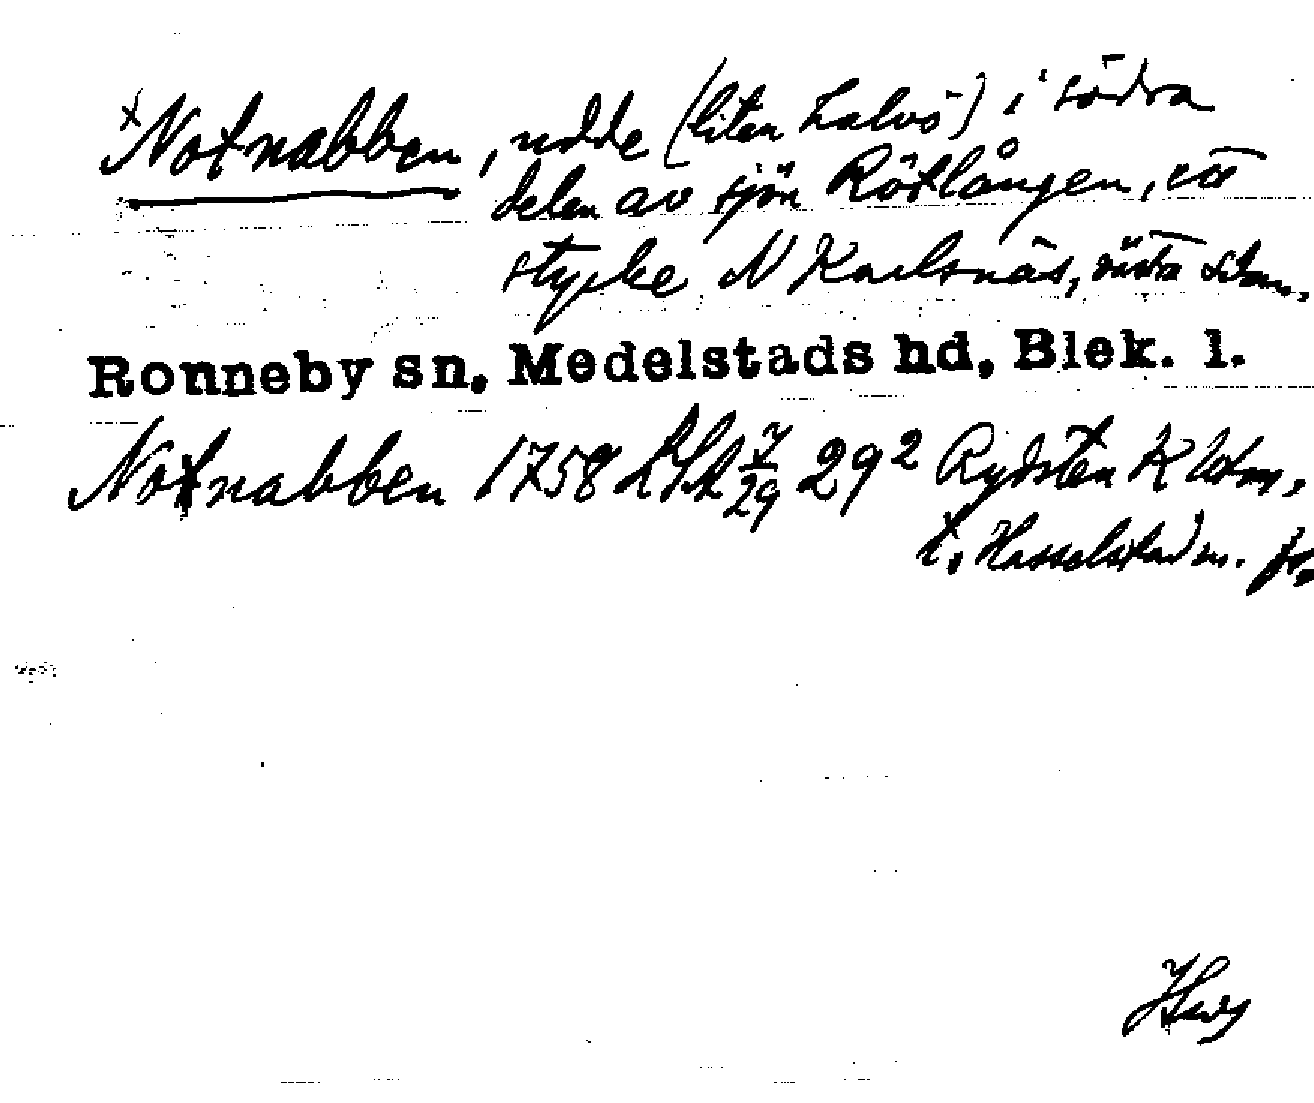 x Notnabben, udde (liten halvö) i södra
delen av sjön Rötlången, ett
stycke N Karlsnäs, västra sidan.
Ronneby sn, Medelstads hd, Blek. l.
Notnabben 1758 LSA 29² Rydsten K
t. Hasselstad